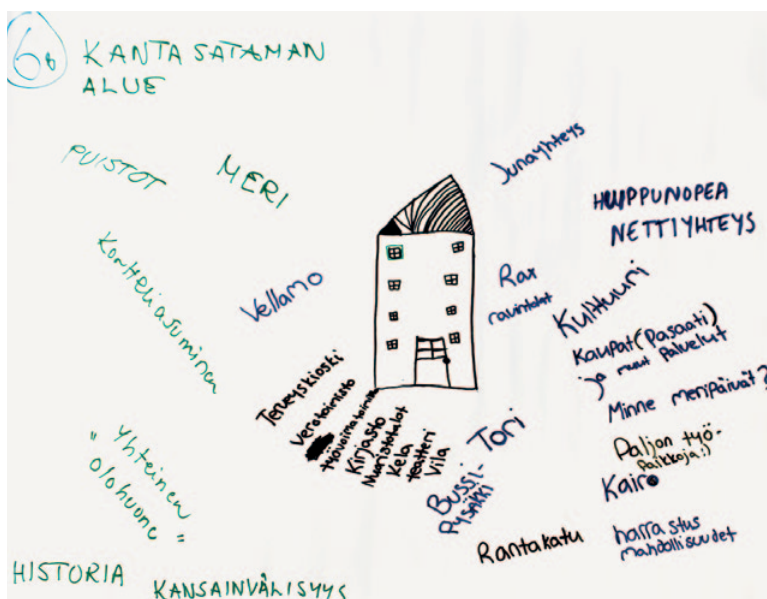 6.
KANTASATAMAN
ALUE
PUISTOT
MERI
Konttiliasuminen
Vellamo
"Yhteinen
olohuone"
HISTORIA
KANSAINVÄLISYYS
Junayhteys
HUIPPUNOPEA
NETTIYHTEYS
Rax
ravintolat
Kulttuuri
Kaupat (Pasaati)
ja muut palvelut
Minne meripäivät?
Paljon työ-
paikkoja:)
Kairo
harrastus
mahdollisuudet
Terveyskioski
Verotoimisto
työvoimatoimisto
Kirjasto
Nuorisotalot
Kela
teatteri
Vila
Tori
Bussi-
pysäkki
Rantakatu